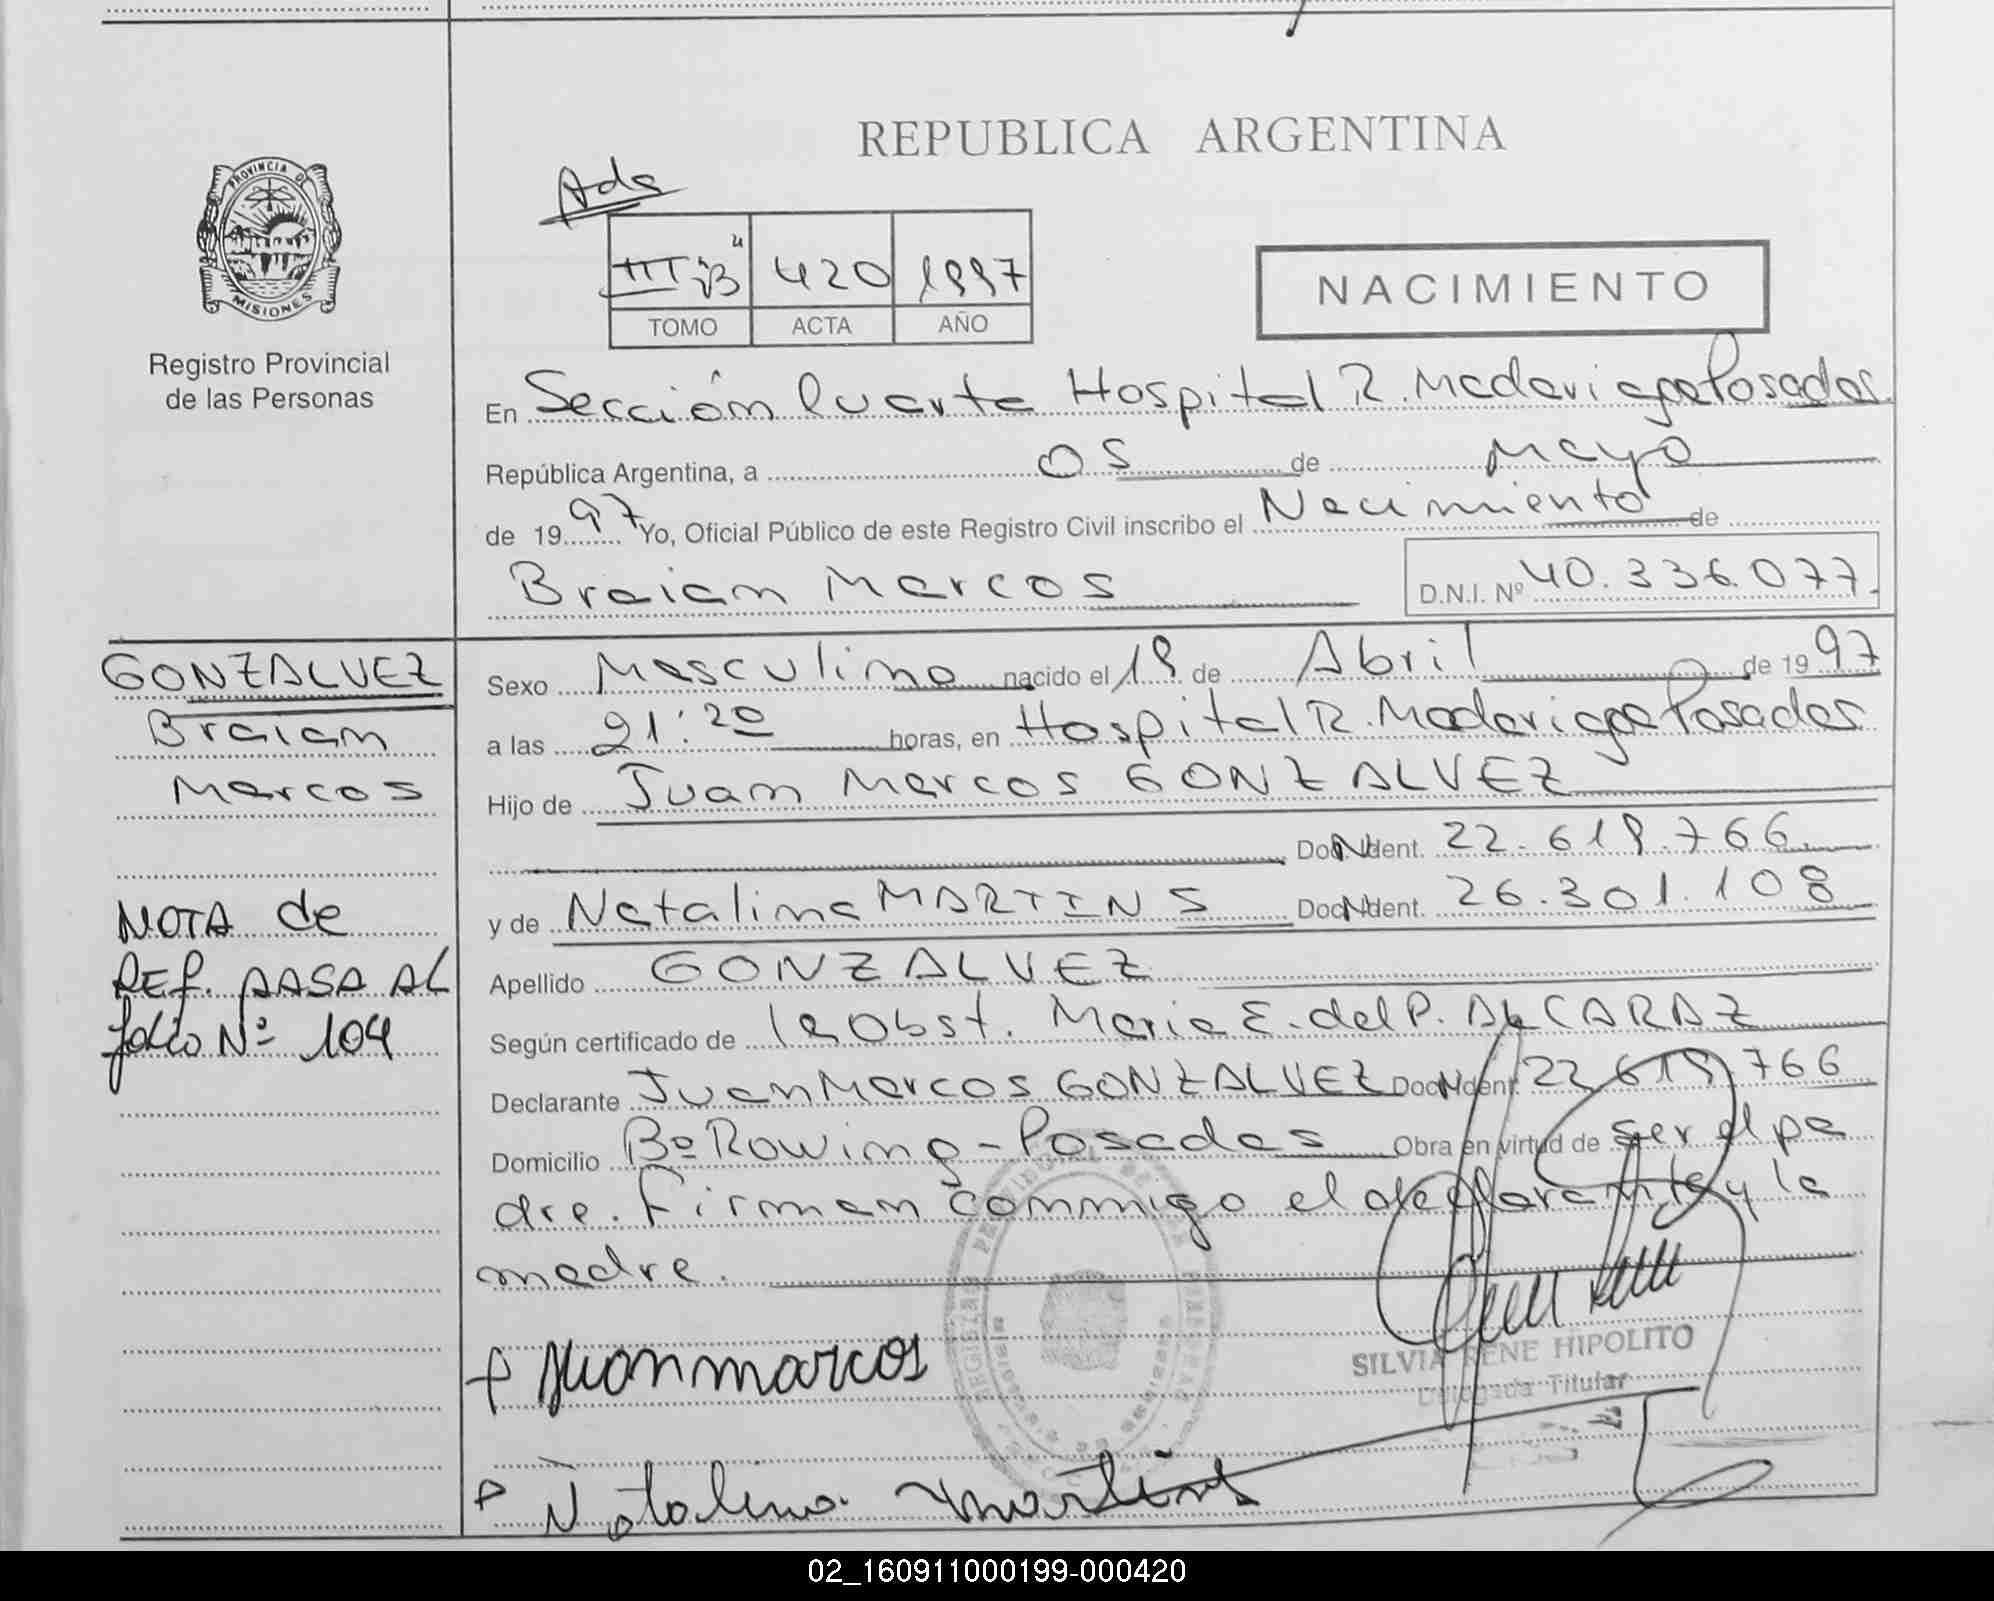 REPUBLICA ARGENTINA
PROVINCIA DE
MISIONES
Registro Provincial
de las Personas
Ads
III "B" 420 1997
TOMO ACTA AÑO
NACIMIENTO
En Sección Cuarta Hospital R. Madariaga Posadas
República Argentina, a 05 de Mayo
de 1997 Yo, Oficial Público de este Registro Civil inscribo el Nacimiento de
Braian Marcos D.N.I. Nº 40.336.077.
GONZALVEZ
Braian
Marcos
NOTA de
REF. PASA AL
folio Nº 104
Sexo Masculino nacido el 19 de Abril de 1997
a las 21:20 horas, en Hospital R. Madariaga Posadas
Hijo de Juan Marcos GONZALVEZ
Doc. Ident. 22.619.766
y de Natalina MARTINS Doc. Ident. 26.301.108
Apellido GONZALVEZ
Según certificado de la Obst. Maria E. del P. ALCARAZ
Declarante Juan Marcos GONZALVEZ Doc. Ident. 22 619 766
Domicilio Bº Rowing - Posadas Obra en virtud de ser el pa
dre. Firman conmigo el declarante y la
madre.
Juan marcos
SILVIA RENE HIPOLITO
Delegada Titular
Natalina martins
02_160911000199-000420